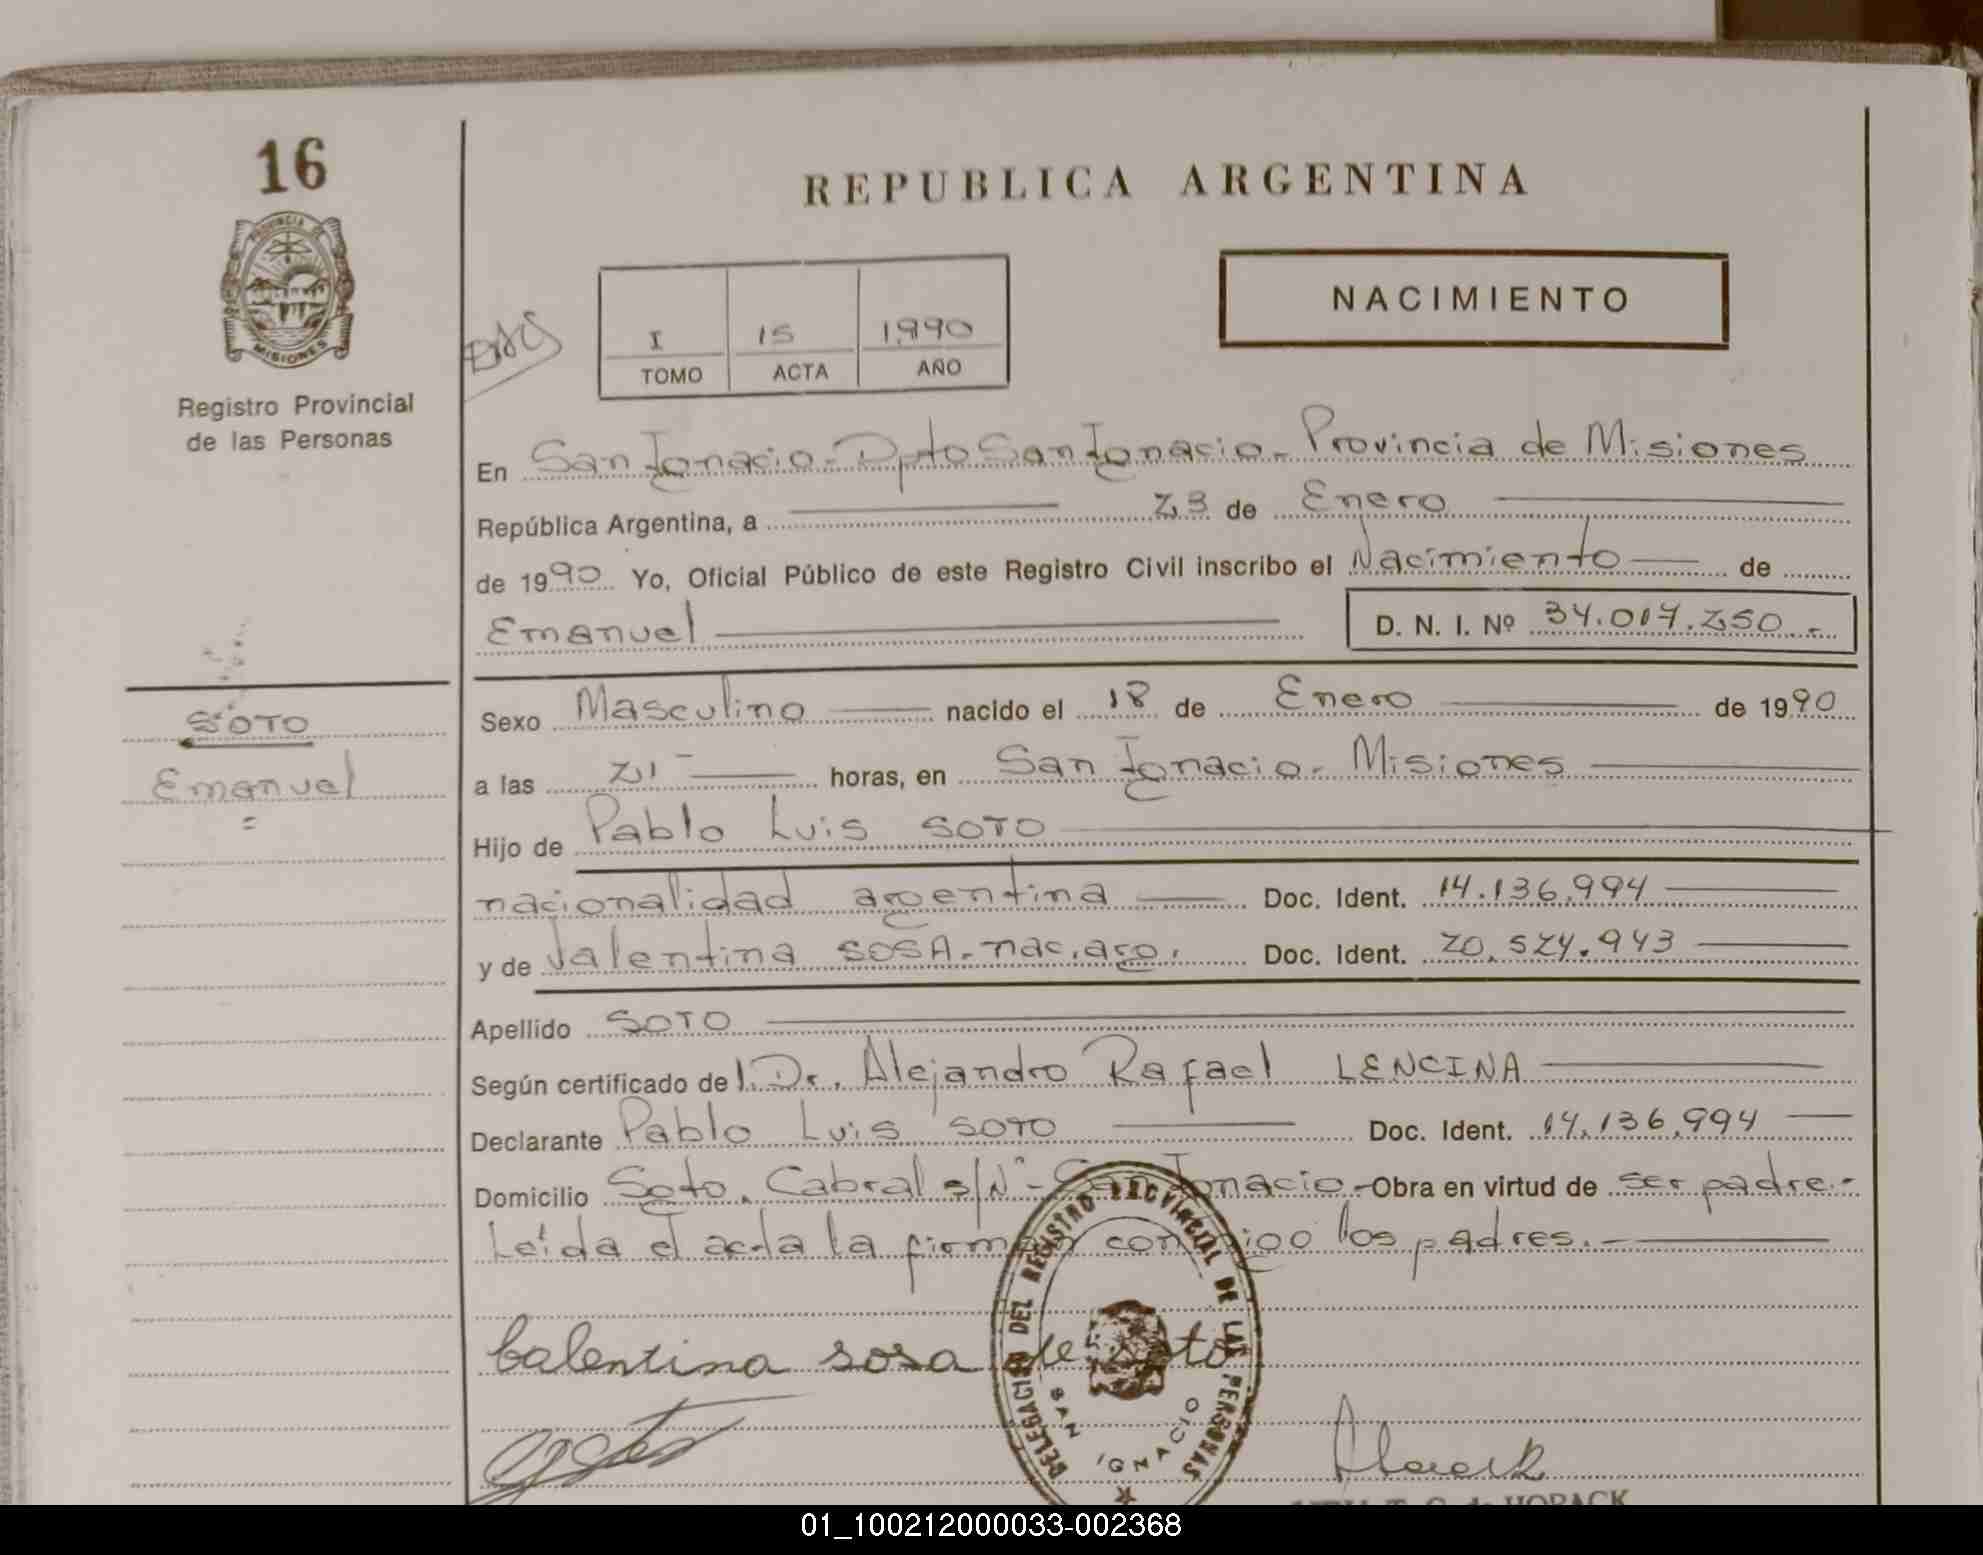 16
PROVINCIA DE
MISIONES
Registro Provincial
de las Personas
REPUBLICA ARGENTINA
NACIMIENTO
I 15 1990
TOMO ACTA AÑO
En San Ignacio - Dpto San Ignacio - Provincia de Misiones
República Argentina, a 23 de Enero
de 1990 Yo, Oficial Público de este Registro Civil inscribo el Nacimiento de
Emanuel D. N. I. Nº 34.017.250.-
SOTO
Emanuel
Sexo Masculino nacido el 18 de Enero de 1990
a las 21 horas, en San Ignacio - Misiones
Hijo de Pablo Luis SOTO
nacionalidad argentina Doc. Ident. 14.136.994
y de Valentina SOSA - nac. arg. Doc. Ident. 20.524.943
Apellido SOTO
Según certificado de l. Dr. Alejandro Rafael LENCINA
Declarante Pablo Luis SOTO Doc. Ident. 14.136.994
Domicilio Soto. Cabral s/Nº - San Ignacio - Obra en virtud de ser padre.-
Leída el acta la firman conmigo los padres.
balentina sosa de soto
DELEGACION DEL REGISTRO PROVINCIAL DE LAS PERSONAS
SAN IGNACIO
de HORACK
01_100212000033-002368